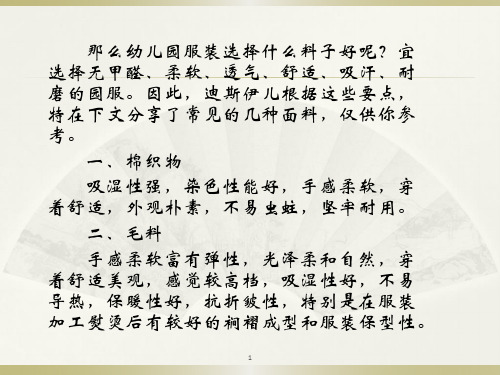 那么幼儿园服装选择什么料子好呢？宜
选择无甲醛、柔软、透气、舒适、吸汗、耐
磨的园服。因此，迪斯伊儿根据这些要点，
特在下文分享了常见的几种面料，仅供你参
考。
一、棉织物
吸湿性强，染色性能好，手感柔软，穿
着舒适，外观朴素，不易虫蛀，坚牢耐用。
二、毛料
手感柔软富有弹性，光泽柔和自然，穿
着舒适美观，感觉较高档，吸湿性好，不易
导热，保暖性好，抗折皱性，特别是在服装
加工熨烫后有较好的裥褶成型和服装保型性。
1